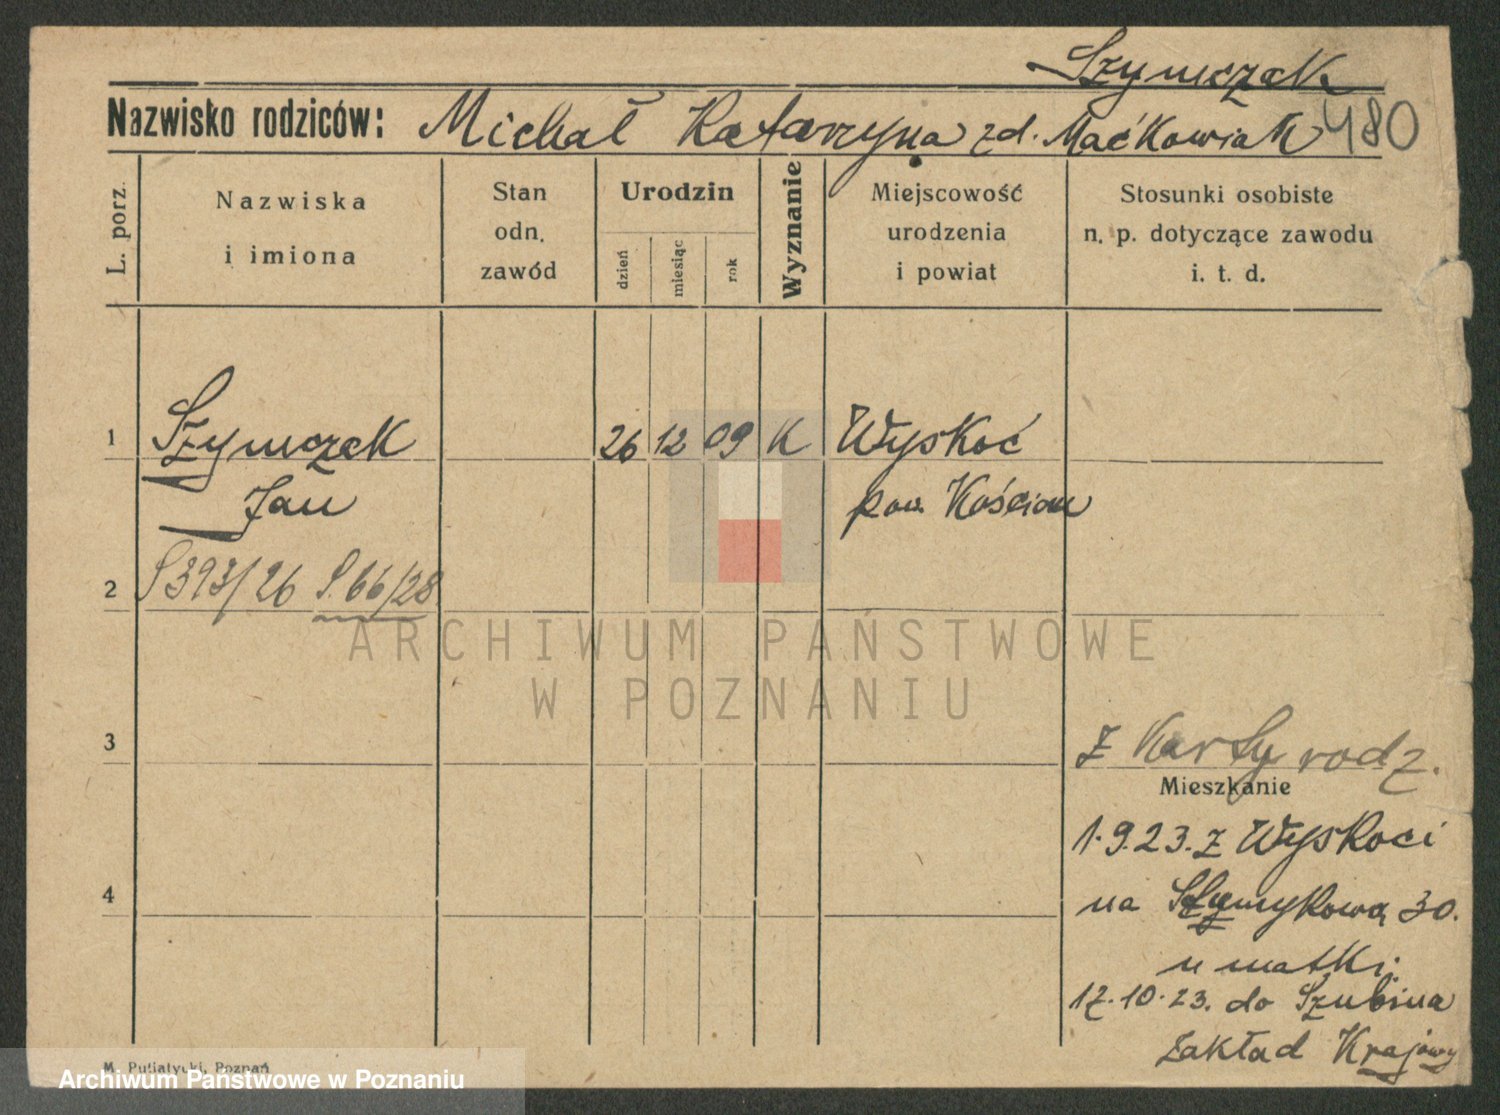 Szymczak
Nazwisko rodziców: Michał Katarzyna zd. Maćkowiak 480
L. porz.
Nazwiska
i imiona
Stan
odn.
zawód
Urodzin
dzień
miesiąc
rok
Wyznanie
Miejscowość
urodzenia
i powiat
Stosunki osobiste
n. p. dotyczące zawodu
i. t. d.
1 Szymczak 26 12 09 K Wyskoć
Jan pow. Kościan
2 S393/26 S.66/28
ARCHIWUM PAŃSTWOWE
W POZNANIU
3 Z Karty rodz.
Mieszkanie
1.9.23. z Wyskoci
4 na 30.
u matki.
17.10.23. do Szubina
Zakład Krajowy
M. Putiatycki, Poznań
Archiwum Państwowe w Poznaniu